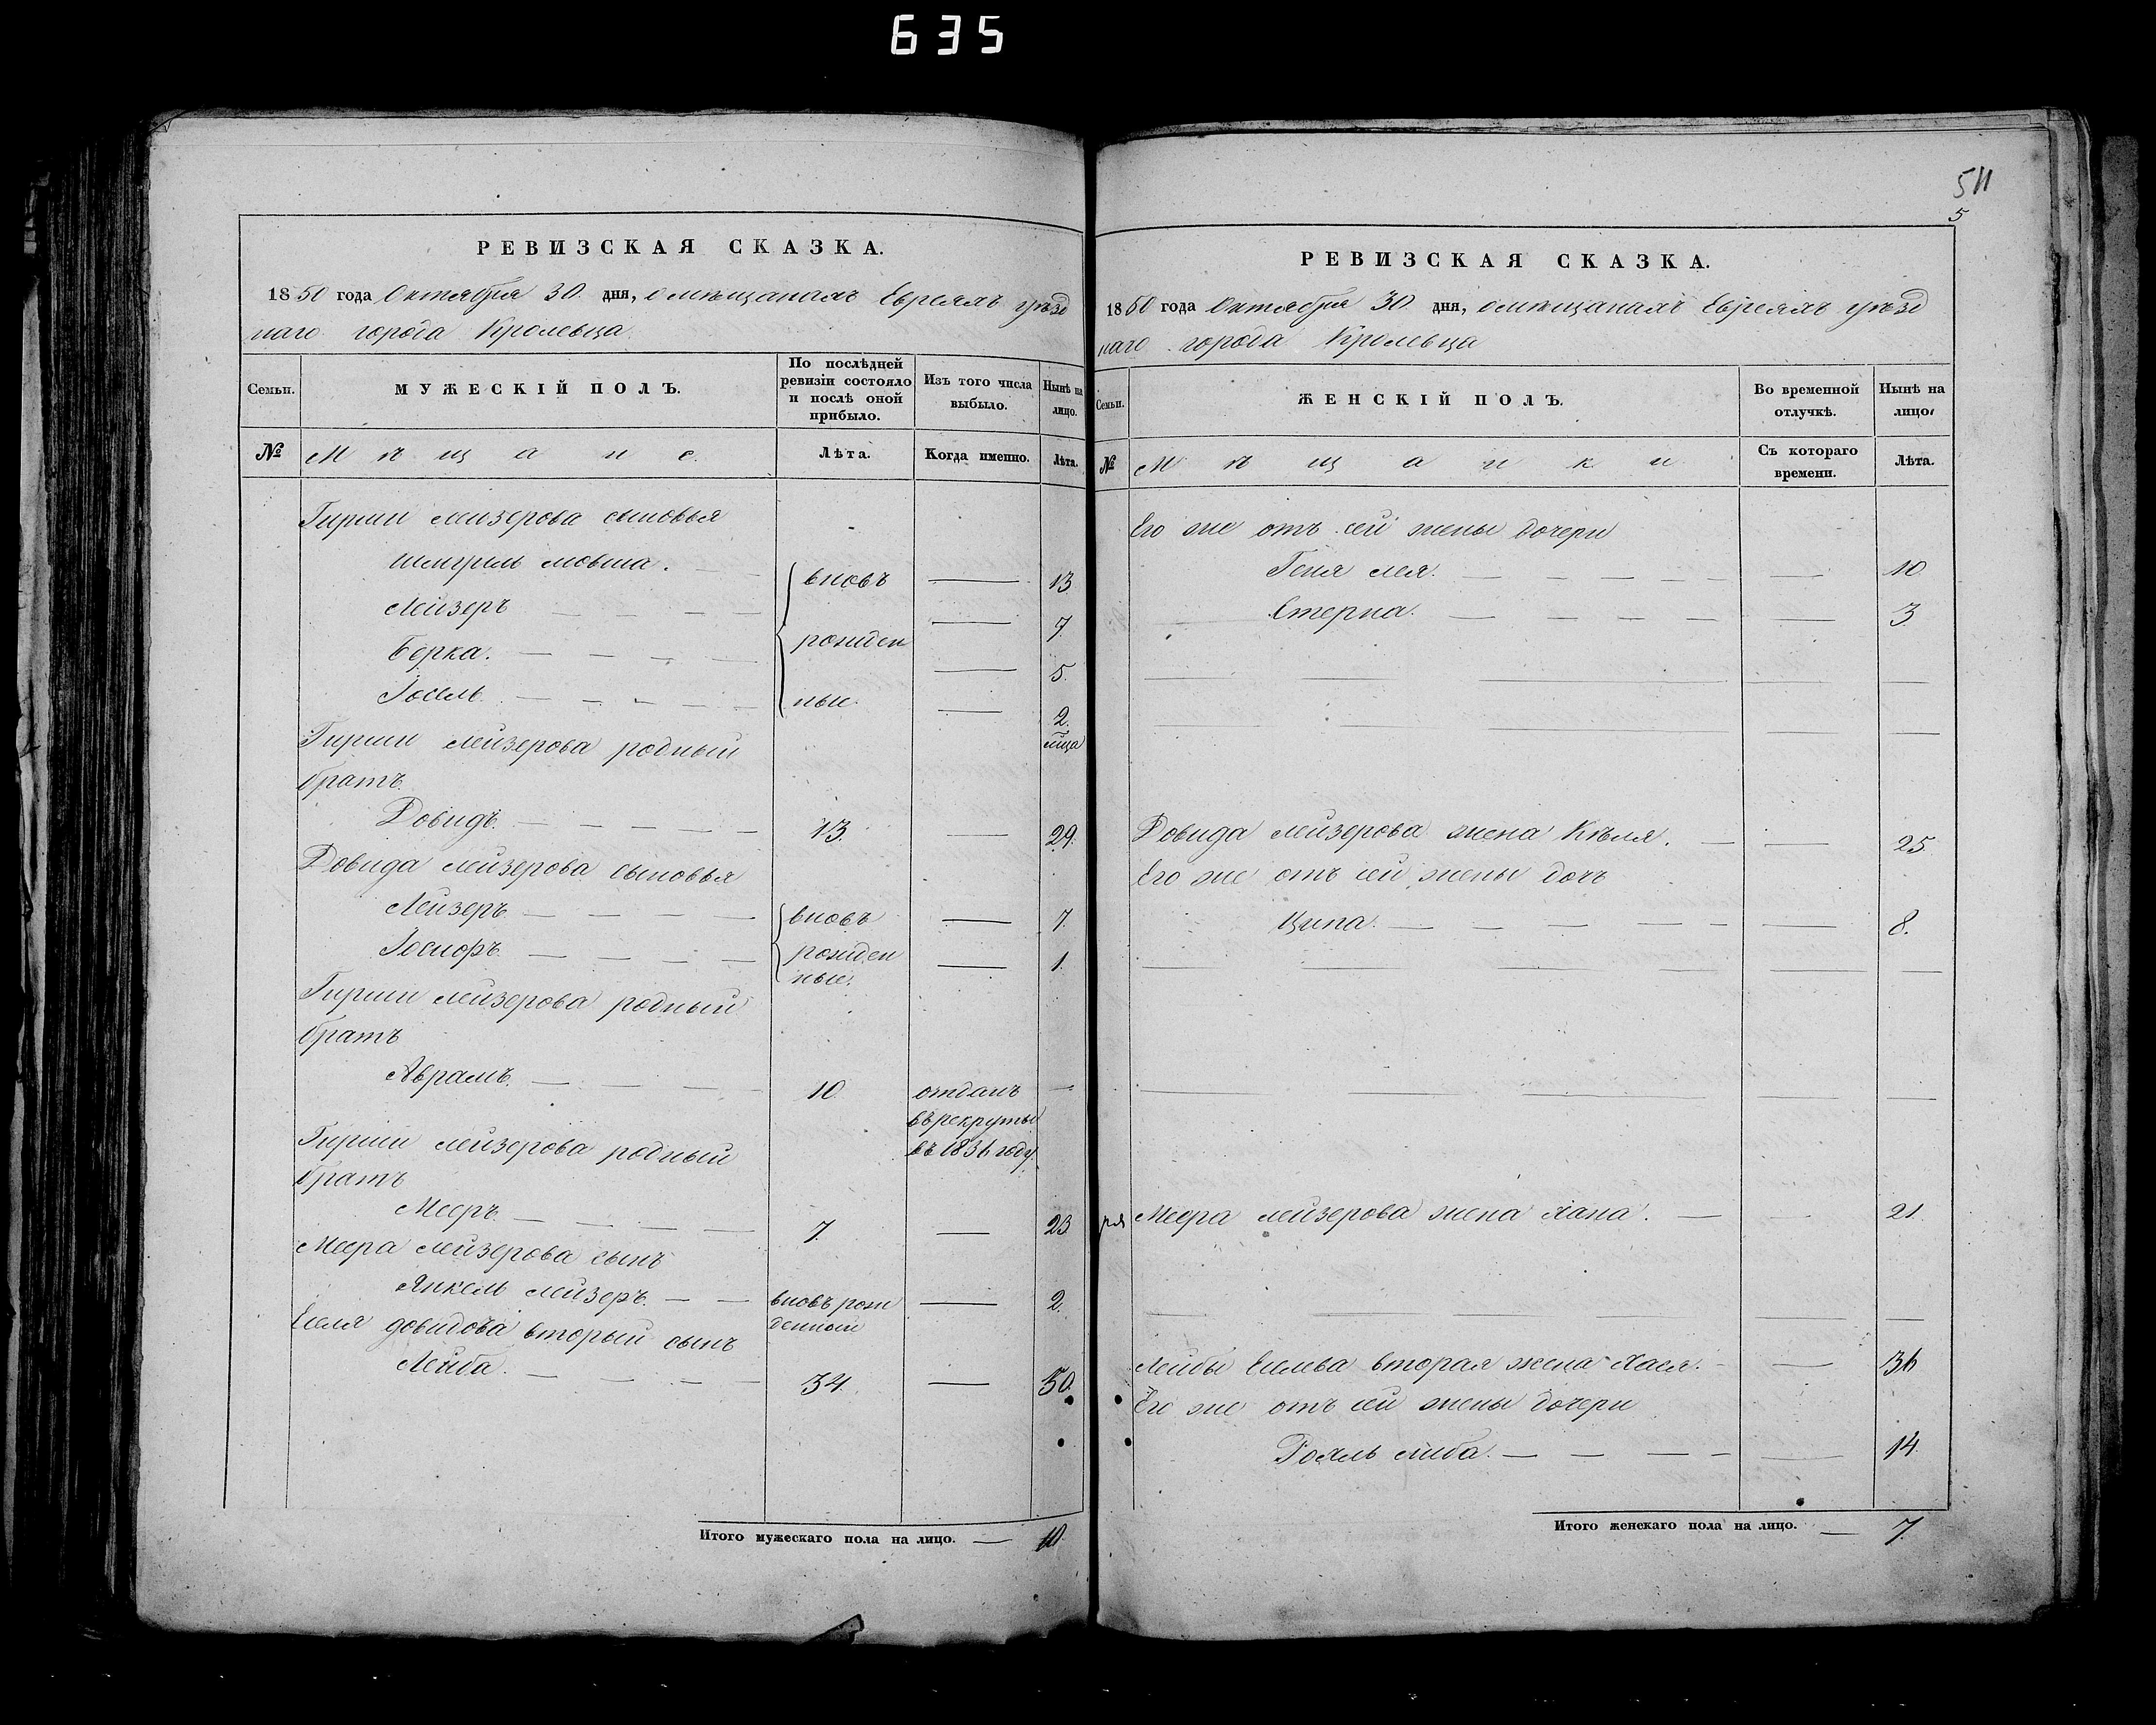 635
РЕВИЗСКАЯ СКАЗКА.
1850 года Октября 30. дня, о мѣщанахъ Евреяхъ уѣзд
наго города Кролевца
Семьи.
МУЖЕСКІЙ ПОЛЪ.
По послѣдней
ревизіи состояло
и послѣ оной
прибыло.
Изъ того числа
выбыло.
Нынѣ на
лицо.
№
Мѣщане.
Лѣта.
Когда именно.
Лѣта.
Гирши лейзерова сыновья
мовша. 13
Лейзеръ 7.
Берка. 5.
Іосель. 2.
вновь
рожден
ные.
лица
Гирши лейзерова родный
братъ.
Довидъ. 13. 29.
Довида лейзерова сыновья
Лейзеръ 7.
Іосифъ. 1.
вновь
рожден
ные.
Гирши лейзерова родный
братъ
Аврамъ. 10. отданъ
въ рекруты
въ 1836 году.
Гирши лейзерова родный
братъ
Мееръ. 7. 23
Меера лейзерова сынъ
Янкель лейзеръ. вновь рож 2.
денный
Еселя довидова вторый сынъ
Лейба. 34. 50.
Итого мужескаго пола на лицо. 10.
511
5
РЕВИЗСКАЯ СКАЗКА.
1850 года Октября 30. дня, о мѣщанахъ Евреяхъ уѣзд
наго города Кролевца
Семьи.
ЖЕНСКІЙ ПОЛЪ.
Во временной
отлучкѣ.
Нынѣ на
лицо.
№
Мѣщанки
Съ котораго
времени.
Лѣта.
Его же отъ сей жены дочери
Геня лея. 10.
Стерна. 3.
Довида лейзерова жена Кѣля. 25
Его же отъ сей жены дочь
Ципа. 8.
Меера лейзерова жена Хана. 21.
Лейбы Еселева вторая жена Хася. 36
Его же отъ сей жены дочери
либа. 14.
Итого женскаго пола на лицо. 7.